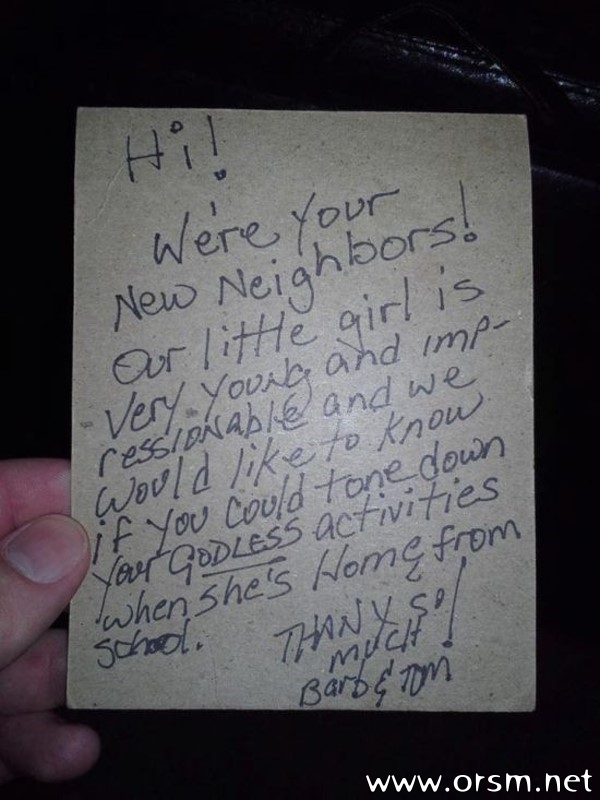 Hi!
We're your
New Neighbors!
Our little girl is
very young and imp-
ressionable and we
would like to know
if you could tone down
your GODLESS activities
when she's Home from
school.
THANX SO
much!
Barb & Tom
www.orsm.net